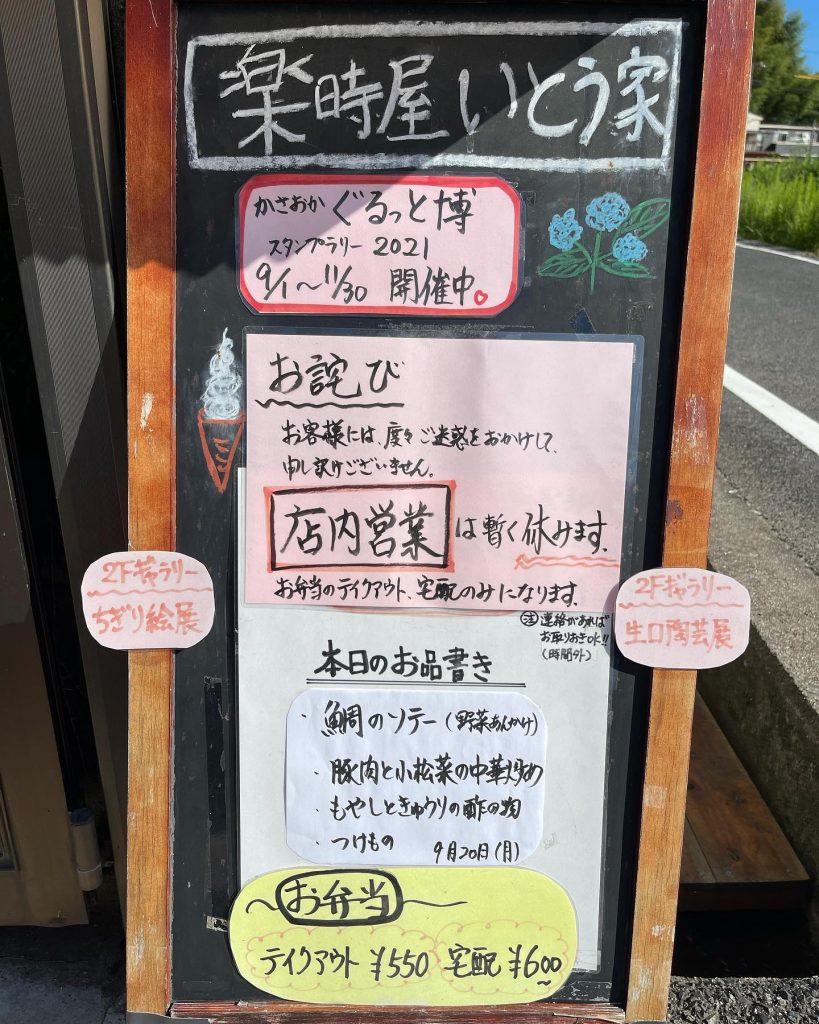 楽時屋いとう家
かさおか ぐるっと博
スタンプラリー 2021
9/1〜11/30 開催中
お詫び
お客様には、度々ご迷惑をおかけして、
申し訳けございません。
店内営業は暫く休みます。
お弁当のテイクアウト、宅配のみになります。
㊟ 連絡があれば
お取りおきOK!!
(時間外)
2Fギャラリー
ちぎり絵展
2Fギャラリー
生口陶芸展
本日のお品書き
・鯛のソテー(野菜あんかけ)
・豚肉と小松菜の中華炒め
・もやしときゅうりの酢の物
・つけもの 9月20日(月)
お弁当
テイクアウト ¥550 宅配 ¥600